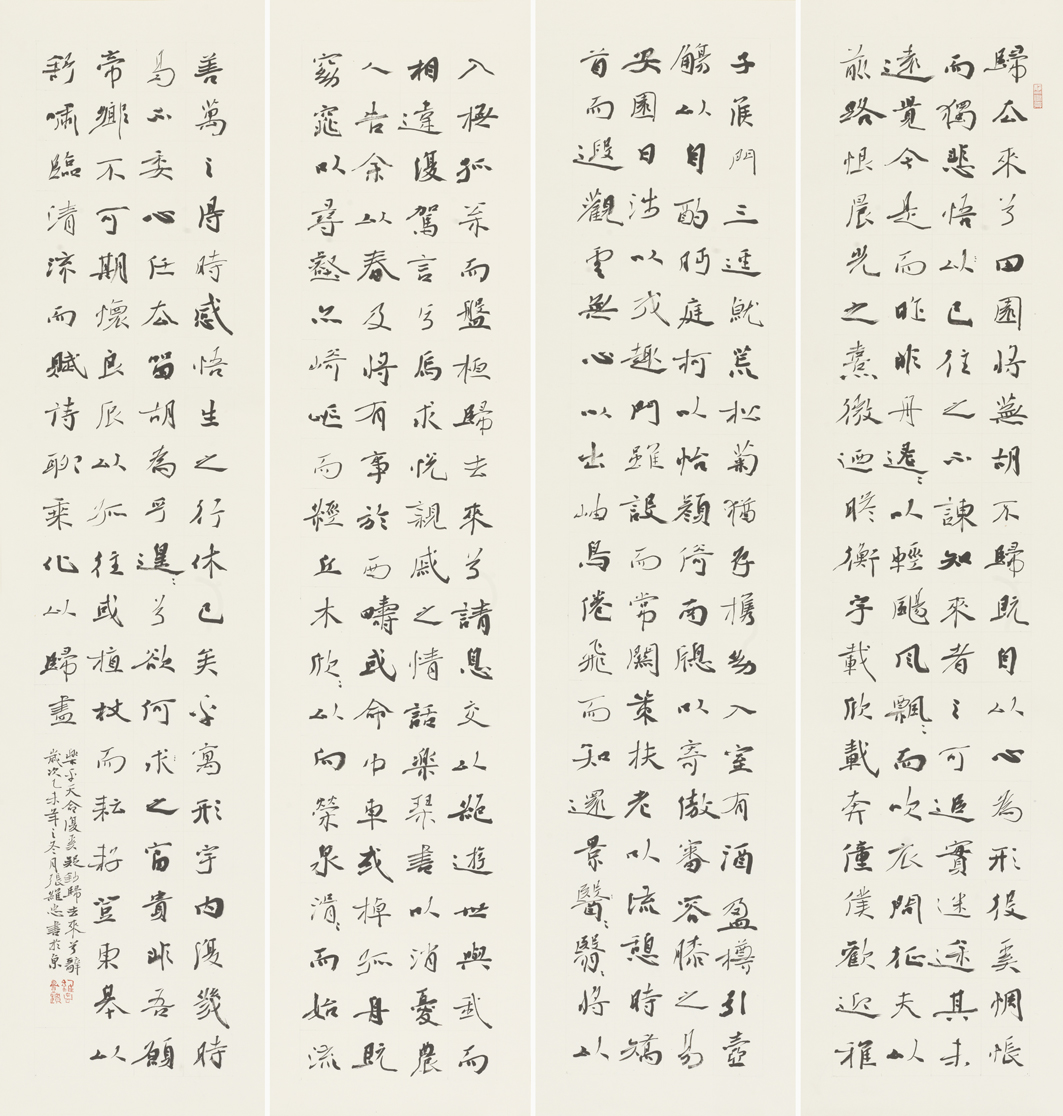 歸去來兮田園將蕪胡不歸既自以心為形役奚惆悵
而獨悲悟以已往之不諫知來者之可追實迷途其未
遠覺今是而昨非舟遙遙以輕颺風飄飄而吹衣問征夫以
前路恨晨光之熹微迺瞻衡宇載欣載奔僮僕歡迎稚
子候門三逕就荒松菊猶存攜幼入室有酒盈樽引壺
觴以自酌眄庭柯以怡顏倚南牕以寄傲審容膝之易
安園日涉以成趣門雖設而常關策扶老以流憩時矯
首而遐觀雲無心以出岫鳥倦飛而知還景翳翳將以
入撫孤松而盤桓歸去來兮請息交以絕遊世與我而
相違復駕言兮焉求悅親戚之情話樂琴書以消憂農
人告余以春及將有事於西疇或命巾車或棹孤舟既
窈窕以尋壑亦崎嶇而經丘木欣欣以向榮泉涓涓而始流
善萬之得時感悟生之行休已矣乎寓形宇內復幾時
曷不委心任去留胡為乎遑遑兮欲何求之富貴非吾願
帝鄉不可期懷良辰以孤往或植杖而耘耔登東皋以
舒嘯臨清流而賦詩聊乘化以歸盡
樂乎天命復奚疑歸去來兮辭
歲次乙未年之冬月張雄忠書於泉